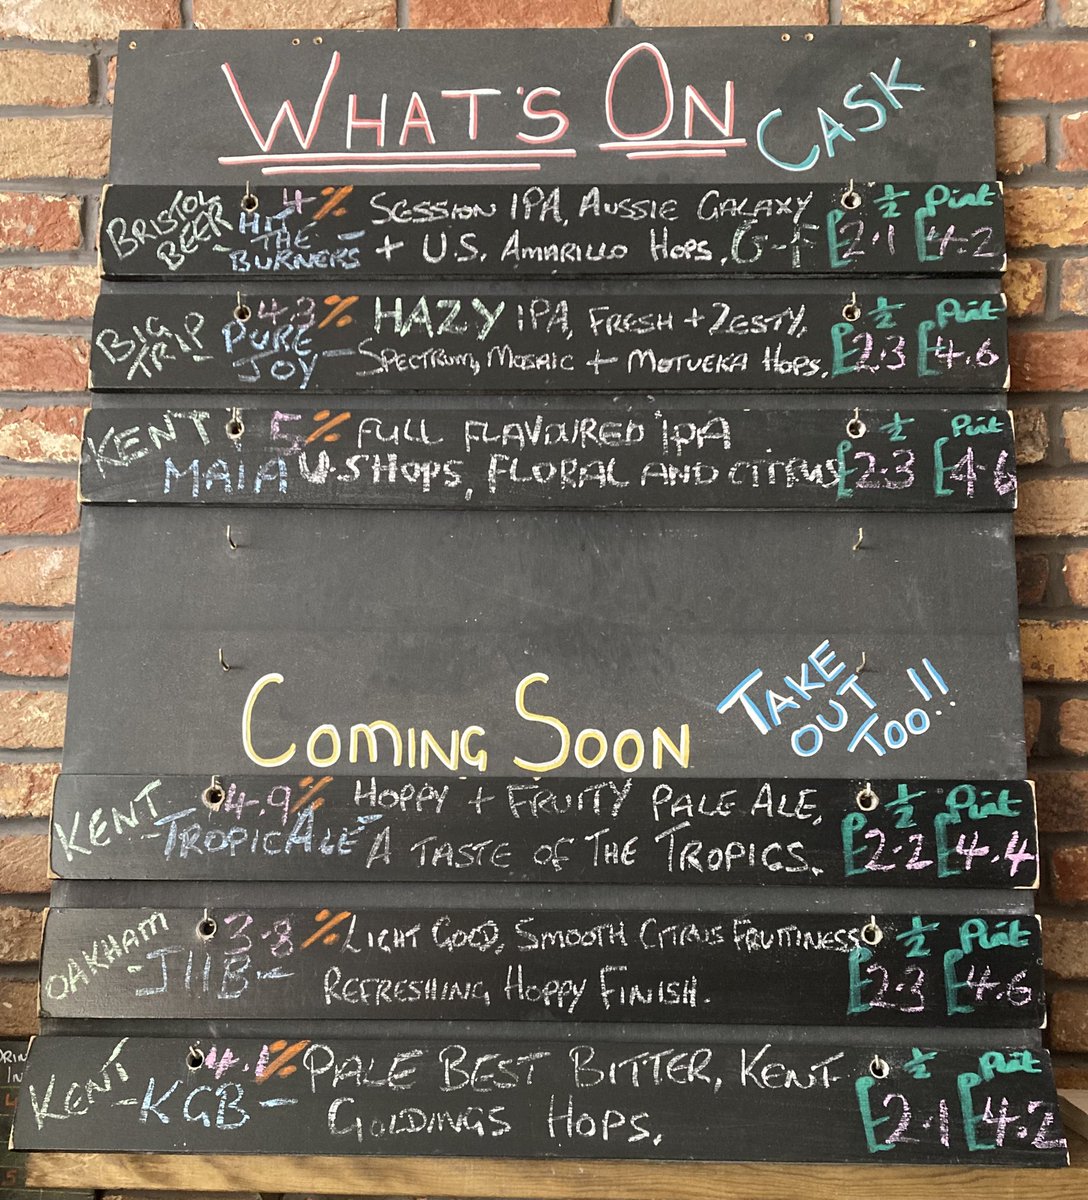 WHAT'S ON CASK
BRISTOL BEER HIT THE BURNERS 4% SESSION IPA, AUSSIE GALAXY ½ Pint
+ U.S. AMARILLO HOPS. G-F £2.1 £4.2
BIG TRIP PURE JOY 4.3% HAZY IPA, FRESH + ZESTY, ½ Pint
SPECTRUM, MOSAIC + MOTUEKA HOPS. £2.3 £4.6
KENT 5% FULL FLAVOURED IPA ½ Pint
MAIA U.S HOPS, FLORAL AND CITRUS £2.3 £4.6
COMING SOON
TAKE
OUT
TOO!!
KENT 4.9% HOPPY + FRUITY PALE ALE, ½ Pint
-TROPICALE- A TASTE OF THE TROPICS. £2.2 £4.4
OAKHAM 3.8% LIGHT GOLD, SMOOTH CITRUS FRUITINESS ½ Pint
-JHB- REFRESHING HOPPY FINISH. £2.3 £4.6
KENT 4.1% PALE BEST BITTER, KENT ½ Pint
-KGB- GOLDINGS HOPS. £2.1 £4.2